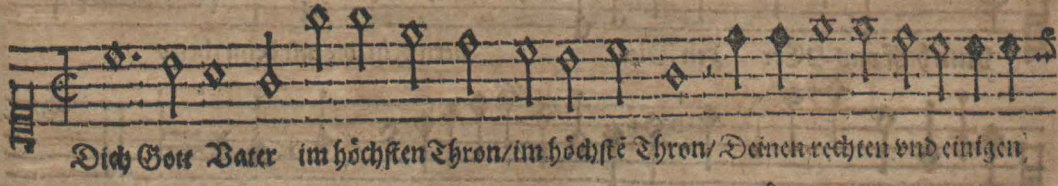 Dich Gott Vater im höchsten Thron/im höchstē Thron/Deinen rechten vnd einigen